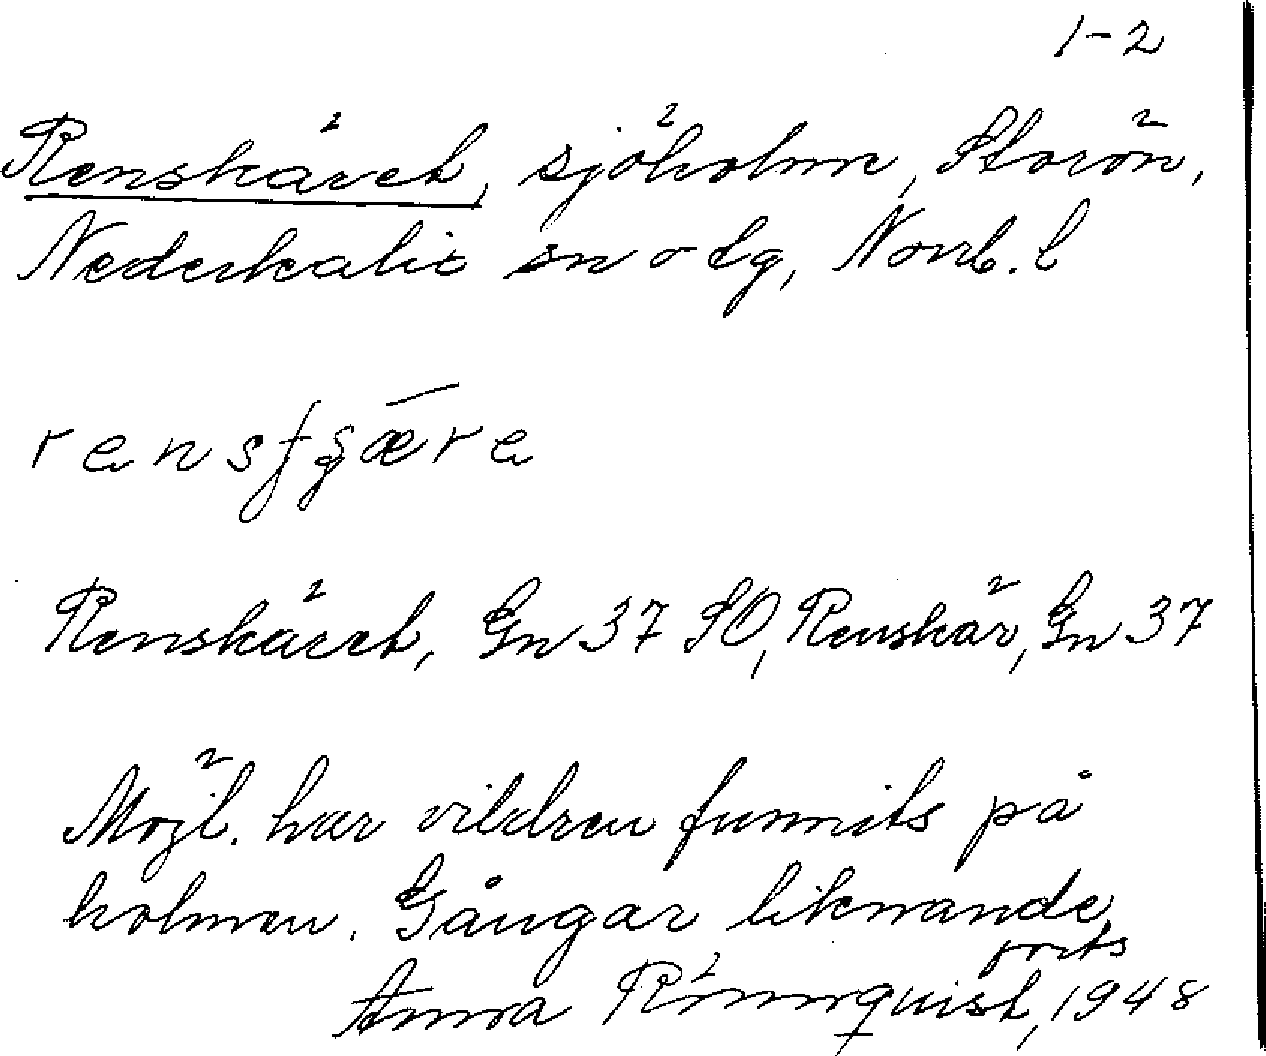 1-2
Renskäret, sjöholme, Storön,
Nederkalix sn o tg, Norrb. l
Renskäret, Gn 37 SO, Renskär, Gn 37
Möjl. har vildren funnits på
holmen. Gångar liknande
forts
Anna Rönnquist, 1948